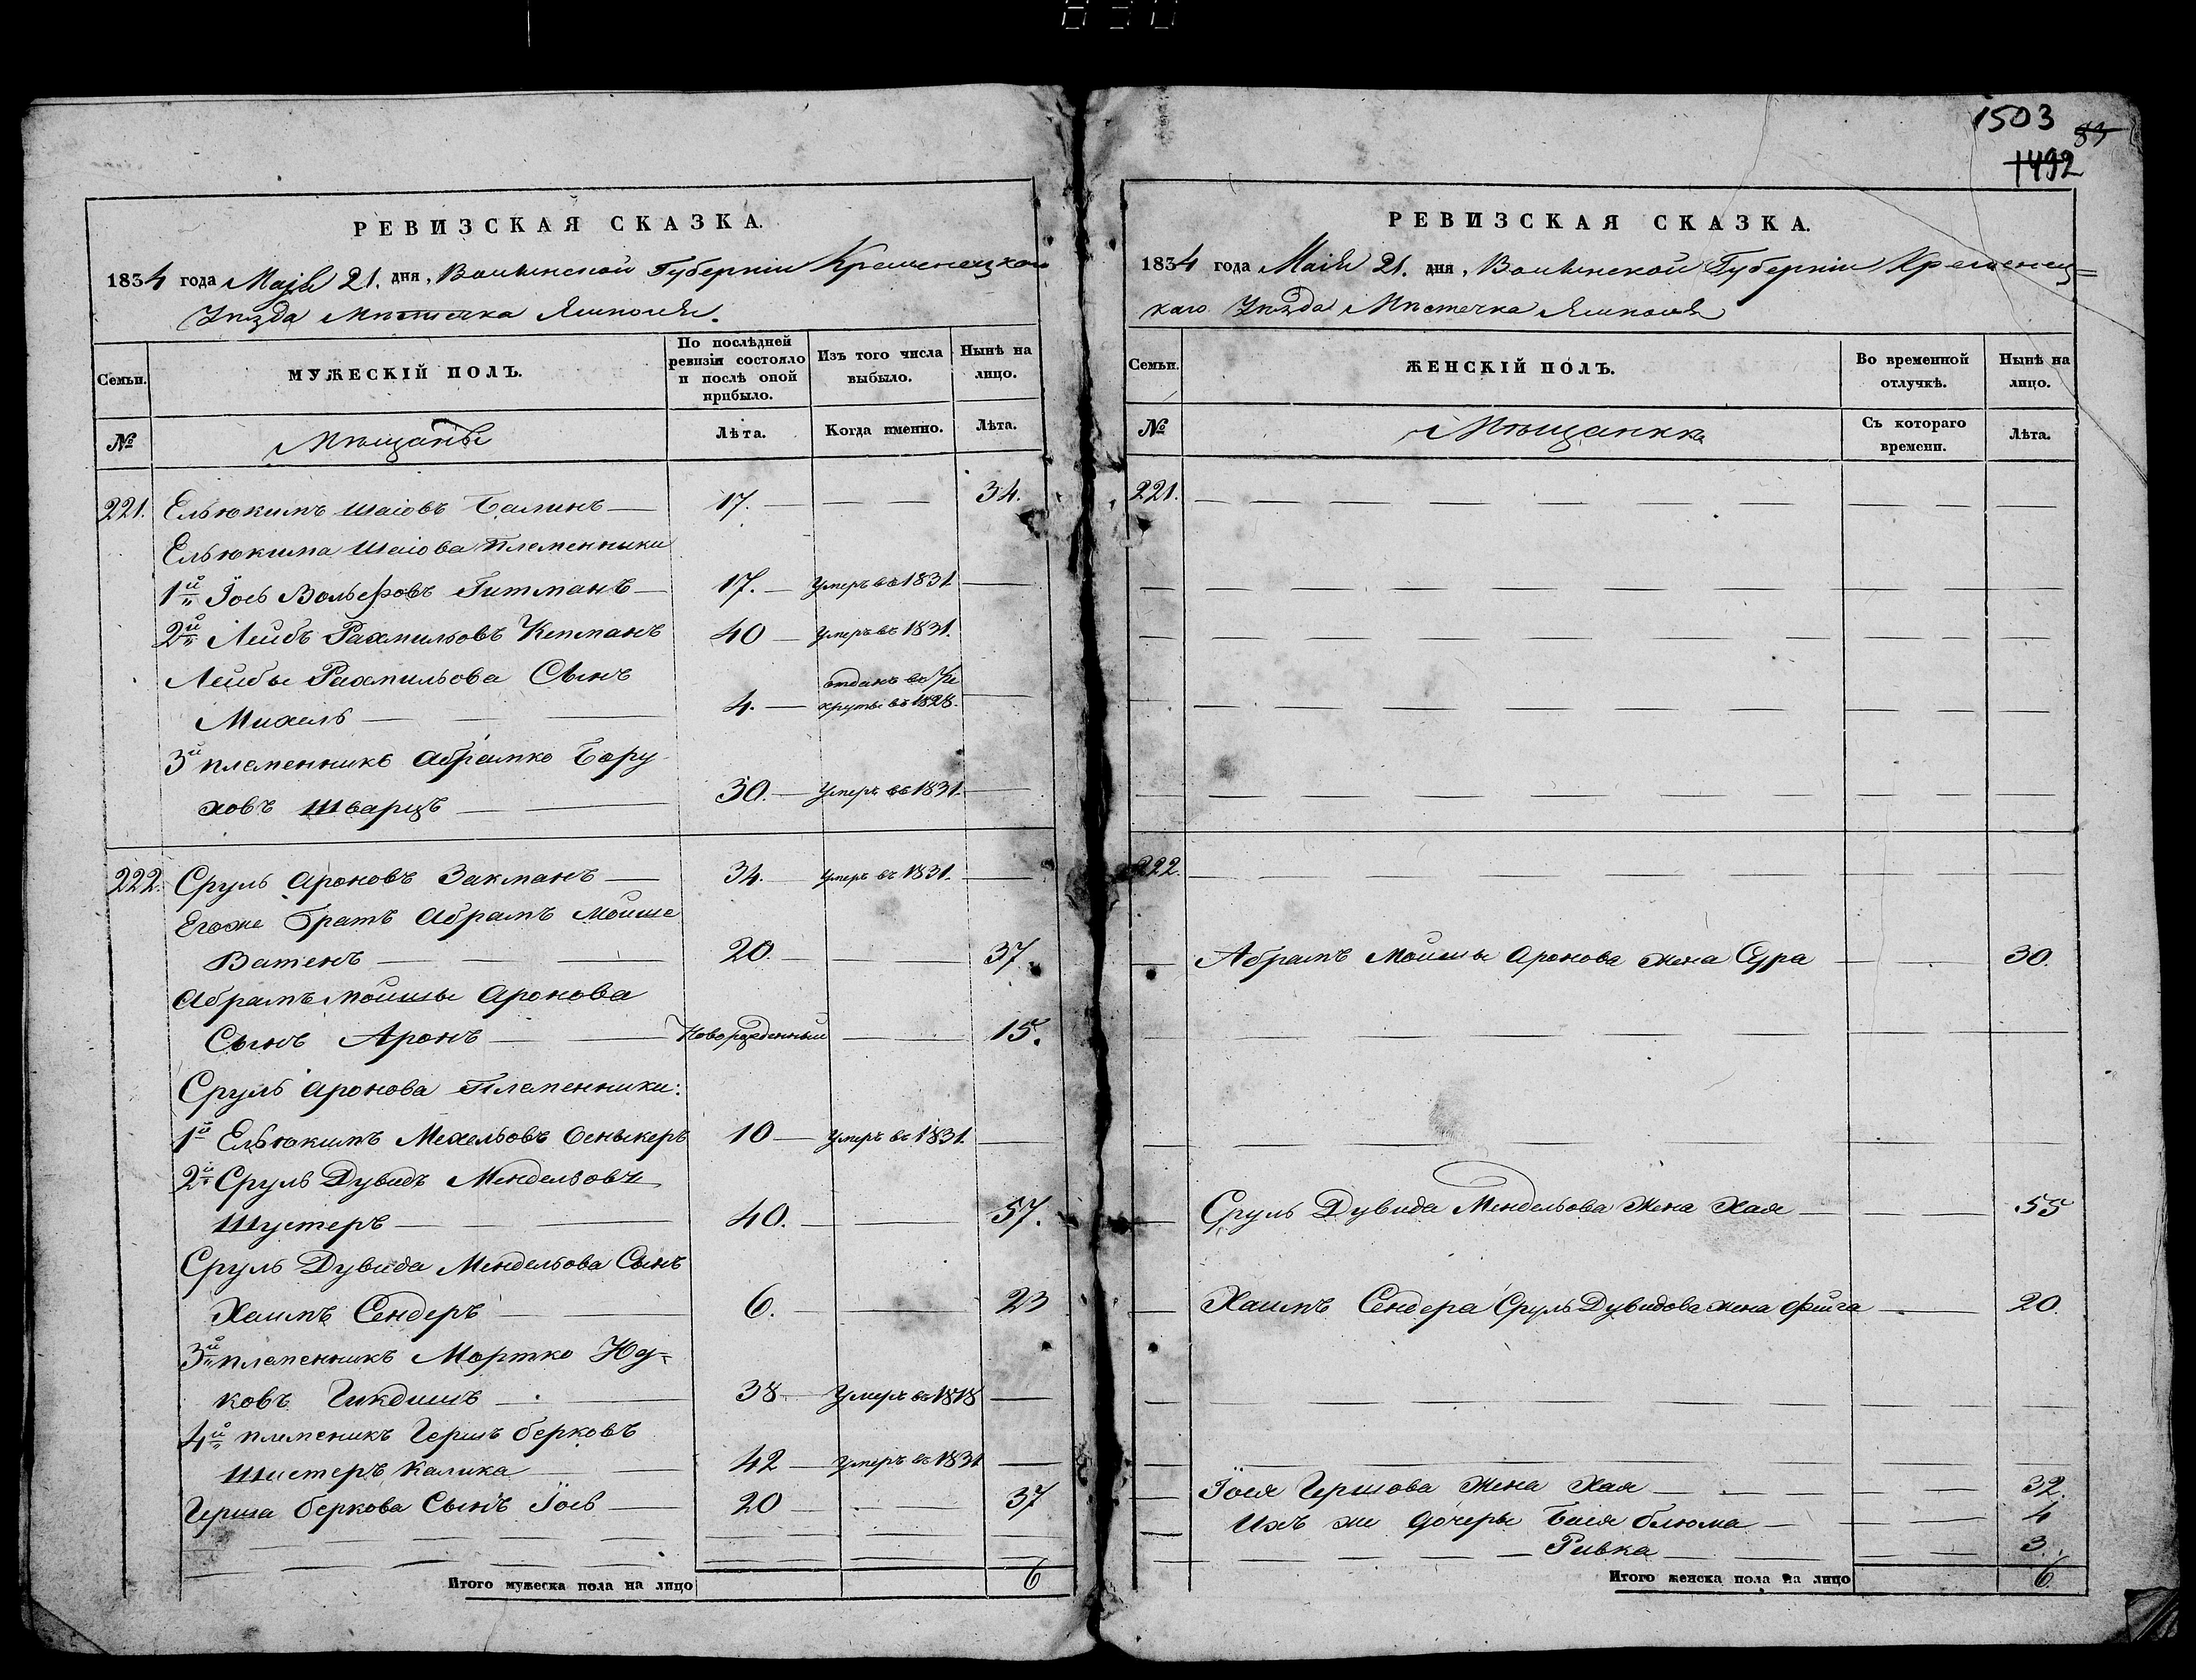 1503
85
1492
РЕВИЗСКАЯ СКАЗКА.
1834 года Маія 21. дня, Волынской Губерніи Кременецкаго
Уѣзда Мѣстечка Ямполя.
Семьи.
МУЖЕСКІЙ ПОЛЪ.
По послѣдней ревизіи состояло и послѣ оной прибыло.
Изъ того числа выбыло.
Нынѣ на лицо.
№
Мѣщане
Лѣта.
Когда именно.
Лѣта.
221. Ельюкимъ Шаіовъ Балинъ — 17. — 34.
Ельюкима Шаіова Племенники
1й Іось Вольфовъ Гитманъ — 17. — умеръ въ 1831. —
2й Лейбъ Рахмильовъ Кетманъ 40 — умеръ въ 1831.
Лейбы Рахмильова Сынъ
Михель — 4. — отданъ въ Рекруты въ 1828. —
3й племенникъ Абрамко Бору-
ховъ Шварцъ — 30. — умеръ въ 1831. —
222. Сруль Ароновъ Закманъ — 34. — умеръ въ 1831. —
Егоже Братъ Абрамъ Мойше
Ватенъ — 20. — 37.
Абрамъ Мойшы Аронова
Сынъ Аронъ — Новорожденный — 15.
Сруль Аронова Племенники:
1й Ельюкимъ Мехельовъ 10 — умеръ въ 1831. —
2й Сруль Дувидъ Мендельовъ
Шустеръ — 40. — 57.
Сруль Дувида Мендельова Сынъ
Хаимъ Сендеръ — 6. — 23
3й племенникъ Мортко Юд-
ковъ — 38 — Умеръ въ 1818 —
4й племеникъ Гершъ Берковъ
Шустеръ Калика — 42 — умеръ въ 1831 —
Герша Беркова Сынъ Іось — 20 — 37
Итого мужеска пола на лицо 6
РЕВИЗСКАЯ СКАЗКА.
1834 года Маія 21. дня, Волынской Губерніи Кременец=
каго Уѣзда Мѣстечка Ямполя
Семьи.
ЖЕНСКІЙ ПОЛЪ.
Во временной отлучкѣ.
Нынѣ на лицо.
№
Мѣщанки
Съ котораго времени.
Лѣта.
221.
222.
Абрамъ Мойшы Аронова жена Сура — 30.
Сруль Дувида Мендельова Жена Хая — 55
Хаимъ Сендера Сруль Дувидова жена Фейга — 20.
Іося Гершова Жена Хая — 32.
Ихъ же дочеры Бася Блюма — 4
Ривка — 3.
Итого женска пола на лицо 6.